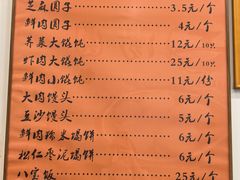 芝麻圆子 3.5元/个
鲜肉圆子 4元/个
荠菜大馄饨 12元/10只
虾肉大馄饨 25元/10只
鲜肉小馄饨 11元/份
大肉馒头 6元/个
豆沙馒头 5元/个
鲜肉糯米塌饼 6元/个
松仁枣泥塌饼 6元/个
八宝饭 25元/个